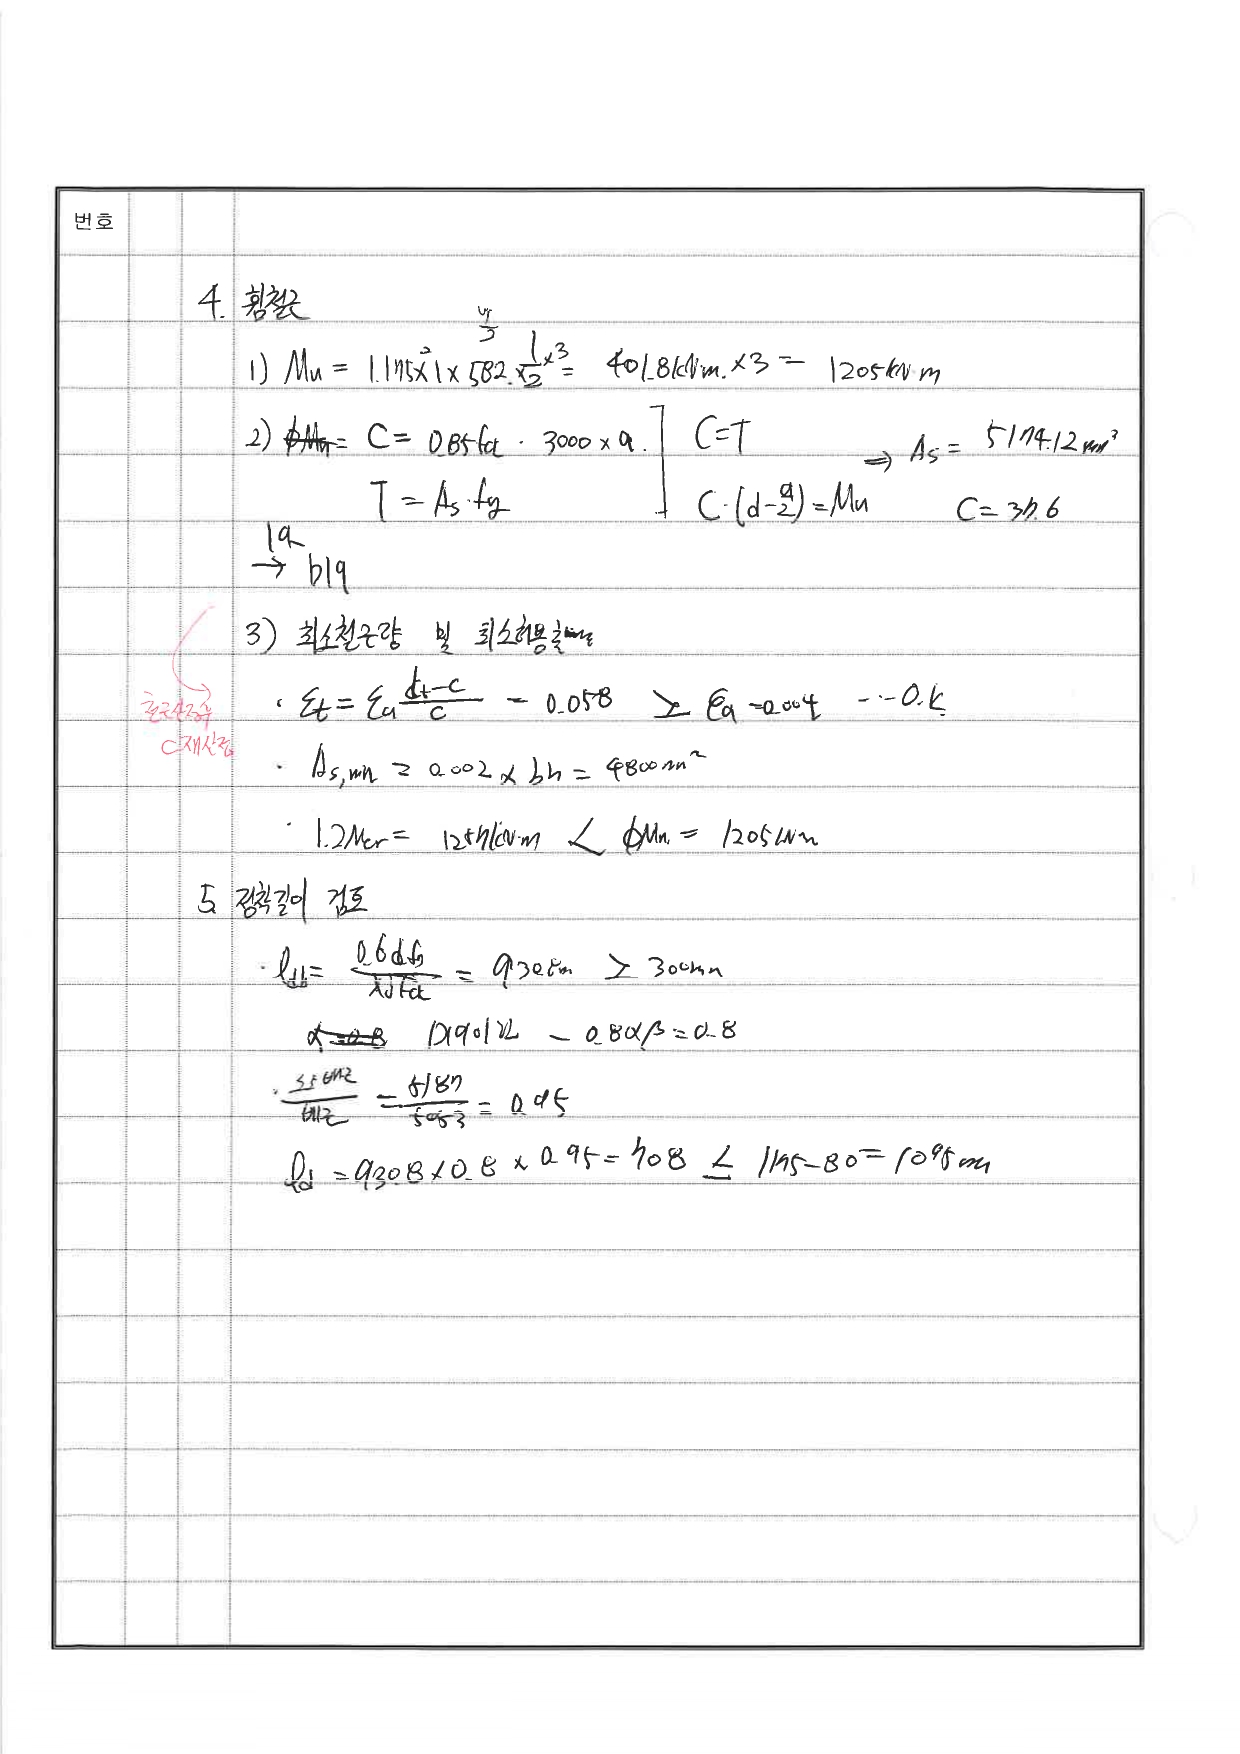 번호
4. 휨철근
1) Mu = 1.175² × 1 × 582 × 1/2 × 3 = 401.8kN·m × 3 = 1205kN·m
2) ϕMn = C = 0.85fck · 3000 × a. C=T ⇒ As = 5174.12mm²
T = As·fy C·(d-a/2) = Mu C = 37.6
→
3) 최소철근량 및 최소허용
철근산정후
C재산정
· εt = εu (dt-c)/c = 0.058 ≥ εa = 0.004 ··· O.K
· As,min = 0.002 × bh = 4800mm²
· 1.2Mcr = 1257kN·m < ϕMn = 1205kN·m
5. 정착길이 검토
· ldb = 0.6dfy/λ√fck = 930.8mm ≥ 300mm
α = 0.8 D19이므로 - 0.8αβ = 0.8
· 소요배근/배근 = 5187/5453 = 0.95
ld = 930.8 × 0.8 × 0.95 = 708 ≤ 1175-80 = 1095mm